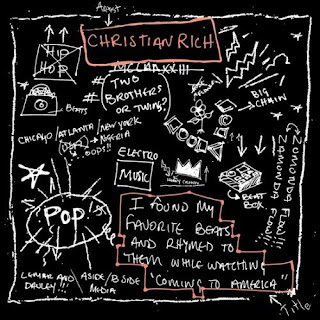 Artist
CHRISTIAN RICH
MCMLXXXIII
HIP
HOP
# TWO
# BROTHERS
OR TWINS?
BEATS
BIG
CHAIN
COOL
CHICAGO/ATLANTA/NEW YORK
NIGERIA
OOPS!!
ELECTRO
MUSIC
POP
BEAT
BOX
Zamonda Flow!!!
Zamonda Flow!!!
I FOUND MY
FAVORITE BEATS
AND RHYMED TO
THEM WHILE WATCHIN
"COMING TO AMERICA"
LEMAR AND
DAULEY!!!
ASIDE/BSIDE
MEDIA
Title